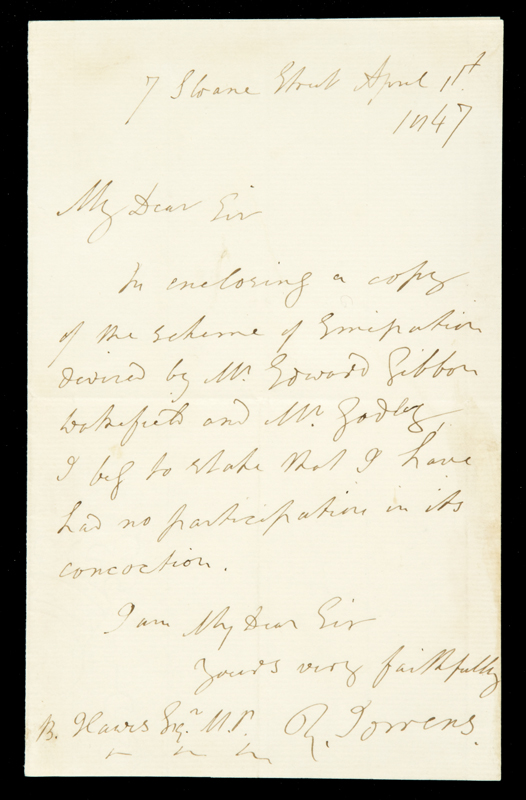 7 Sloane Street April 1st
1847
My Dear Sir
In enclosing a copy
of the scheme of Emigration
devised by Mr. Edward Gibbon
Wakefield and Mr. Godley,
I beg to state that I have
had no participation in its
concoction.
I am My Dear Sir
yours very faithfully
B. Hawes Esqr. M.P. R. Torrens.